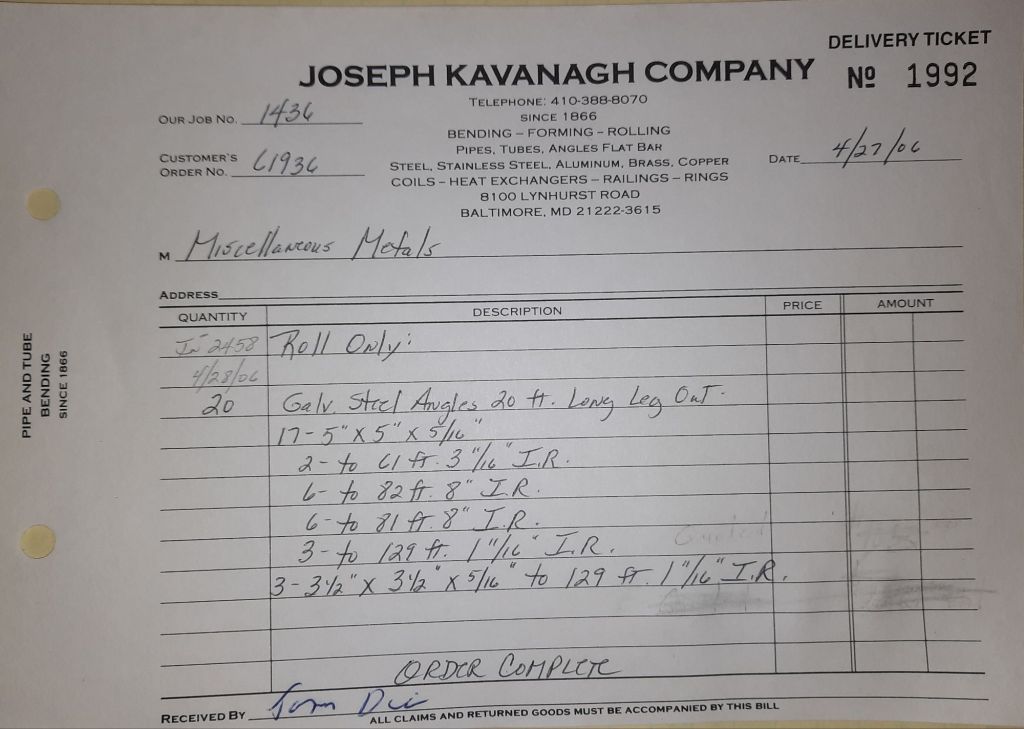 DELIVERY TICKET
JOSEPH KAVANAGH COMPANY
Nº 1992
TELEPHONE: 410-388-8070
SINCE 1866
BENDING – FORMING – ROLLING
PIPES, TUBES, ANGLES FLAT BAR
STEEL, STAINLESS STEEL, ALUMINUM, BRASS, COPPER
COILS – HEAT EXCHANGERS – RAILINGS – RINGS
8100 LYNHURST ROAD
BALTIMORE, MD 21222-3615
OUR JOB NO. 1436
CUSTOMER'S
ORDER NO. 61936
DATE 4/27/06
M Miscellaneous Metals
ADDRESS
QUANTITY DESCRIPTION PRICE AMOUNT
In 2458 Roll Only:
4/28/06
20 Galv. Steel Angles 20 ft. Long Leg Out.
17- 5" X 5" X 5/16"
2- to 61 ft. 3 "/16" I.R.
6- to 82 ft. 8" I.R.
6- to 81 ft. 8" I.R.
3- to 129 ft. 1 "/16" I.R.
3- 3 1/2" X 3 1/2" X 5/16" to 129 ft. 1 "/16" I.R.
ORDER COMPLETE
RECEIVED BY Tom
ALL CLAIMS AND RETURNED GOODS MUST BE ACCOMPANIED BY THIS BILL
PIPE AND TUBE
BENDING
SINCE 1866